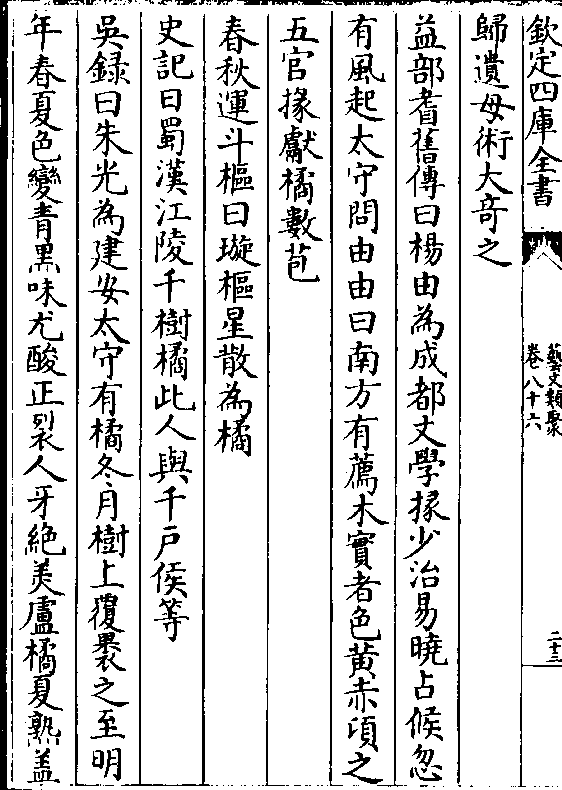 欽定四庫全書
藝文類聚
卷八十六
二十三
歸遺母術大奇之
益部耆舊傳曰楊由為成都文學掾少治易曉占候忽
有風起太守問由由曰南方有薦木實者色黃赤頃之
五官掾獻橘數苞
春秋運斗樞曰璇樞星散為橘
史記曰蜀漢江陵千樹橘此人與千戶侯等
吳錄曰朱光為建安太守有橘冬月樹上覆裹之至明
年春夏色變青黑味尤酸正裂人牙絶美盧橘夏熟盖